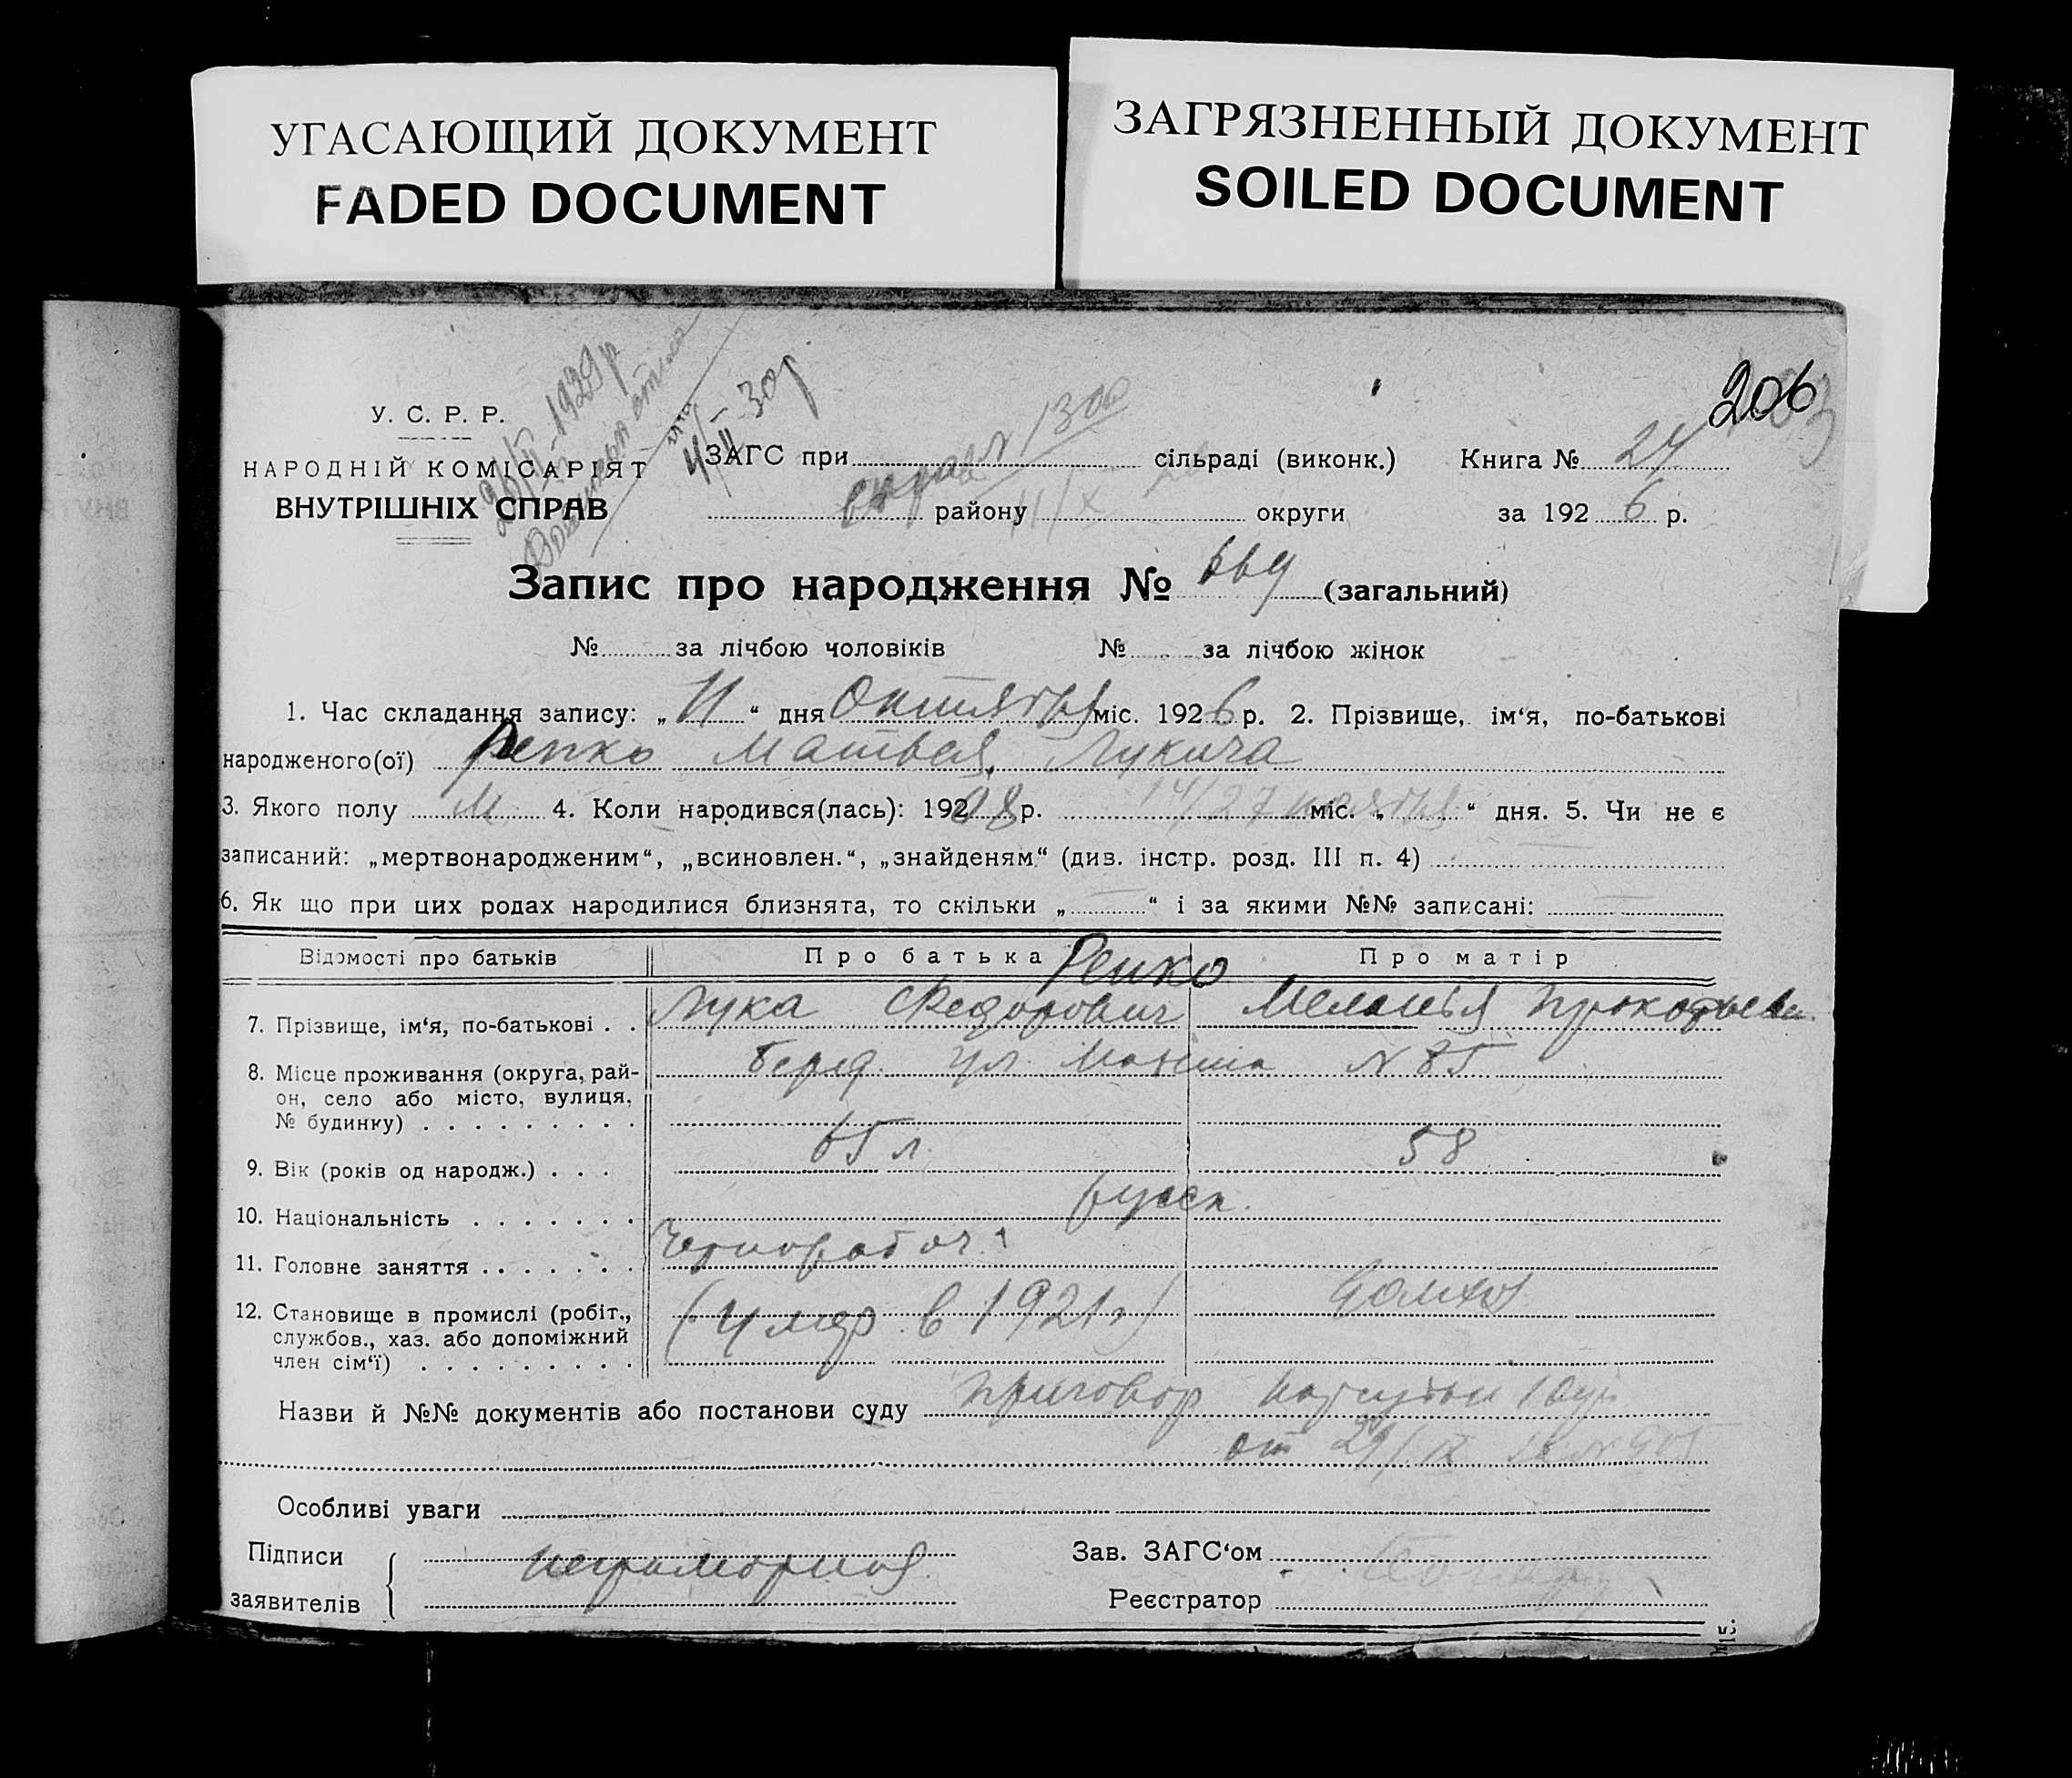 УГАСАЮЩИЙ ДОКУМЕНТ
FADED DOCUMENT
ЗАГРЯЗНЕННЫЙ ДОКУМЕНТ
SOILED DOCUMENT
206
У. С. Р. Р.
НАРОДНІЙ КОМІСАРІЯТ
ВНУТРІШНІХ СПРАВ
1929 р
30 р
1300
ЗАГС при сільраді (виконк.) Книга № 24
району округи за 1926 р.
Запис про народження № 669 (загальний)
№ за лічбою чоловіків № за лічбою жінок
1. Час складання запису: „11“ дня Октября міс. 1926 р. 2. Прізвище, ім‘я, по-батькові
народженого(ої) Репко Матвея Лукича
3. Якого полу М 4. Коли народився(лась): 192 08 р. 14/27 ноября міс. „ “ дня. 5. Чи не є
записаний: „мертвонародженим“, „всиновлен.“, „знайденям“ (див. інстр. розд. III п. 4)
6. Як що при цих родах народилися близнята, то скільки „ “ і за якими №№ записані:
Відомості про батьків Про батька Про матір
Репко
7. Прізвище, ім‘я, по-батькові Лука Федорович Меланья Прокофьевн.
8. Місце проживання (округа, рай-
он, село або місто, вулиця,
№ будинку)
Берд. ул. N 85
9. Вік (років од народж.) 65 л. 58
10. Національність русск.
11. Головне заняття Чернорабоч.
12. Становище в промислі (робіт.,
службов., хаз. або допоміжний
член сім‘ї)
(Умер в 1921 г) домхоз
Назви й №№ документів або постанови суду Приговор нарсудьи
от 29/IX
Особливі уваги
Підписи
заявителів
неграмотная
Зав. ЗАГС‘ом
Реєстратор